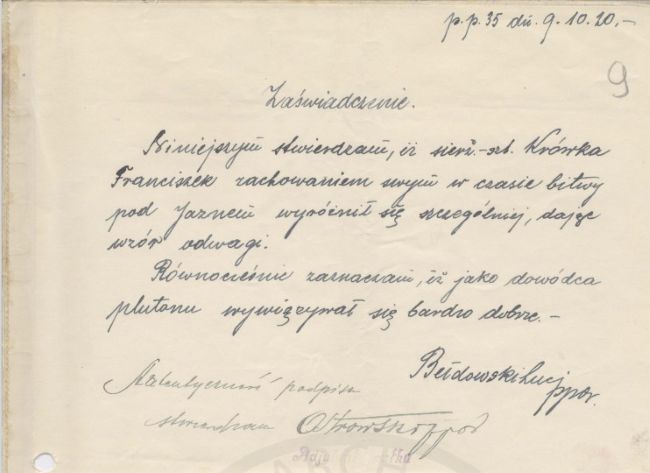 p.p. 35 dn. 9.10.20.-
9
Zaświadczenie.
Niniejszym stwierdzam, iż sierż.-szt. Krówka
Franciszek zachowaniem swym w czasie bitwy
pod Jaznem wyróżnił się szczególniej, dając
wzór odwagi.
Równocześnie zaznaczam, iż jako dowódca
plutonu wywięzywał się bardzo dobrze.-
Bełdowski Lucj
ppor.
Autentyczność podpisu
stwierdzam